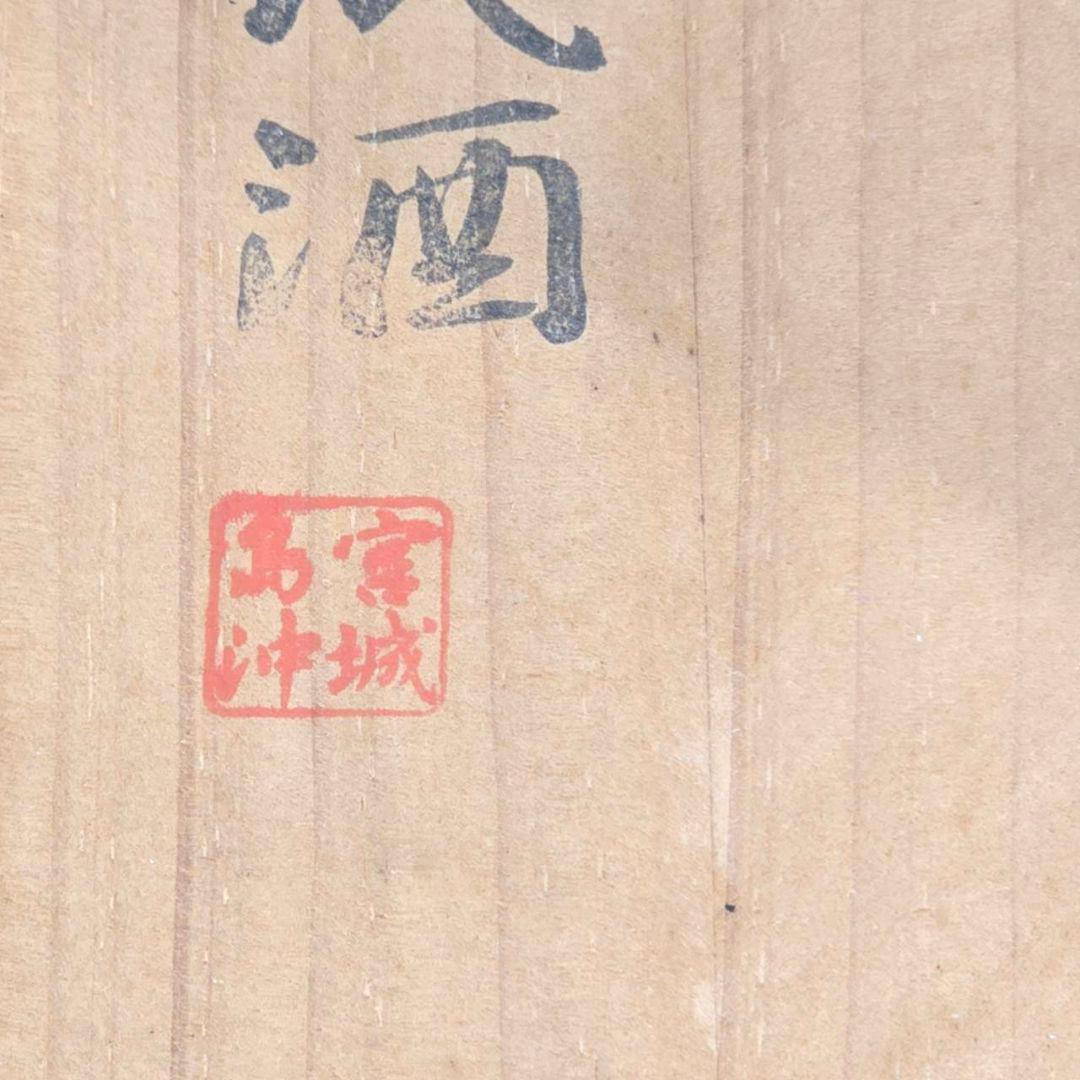 酒
宮城
島沖